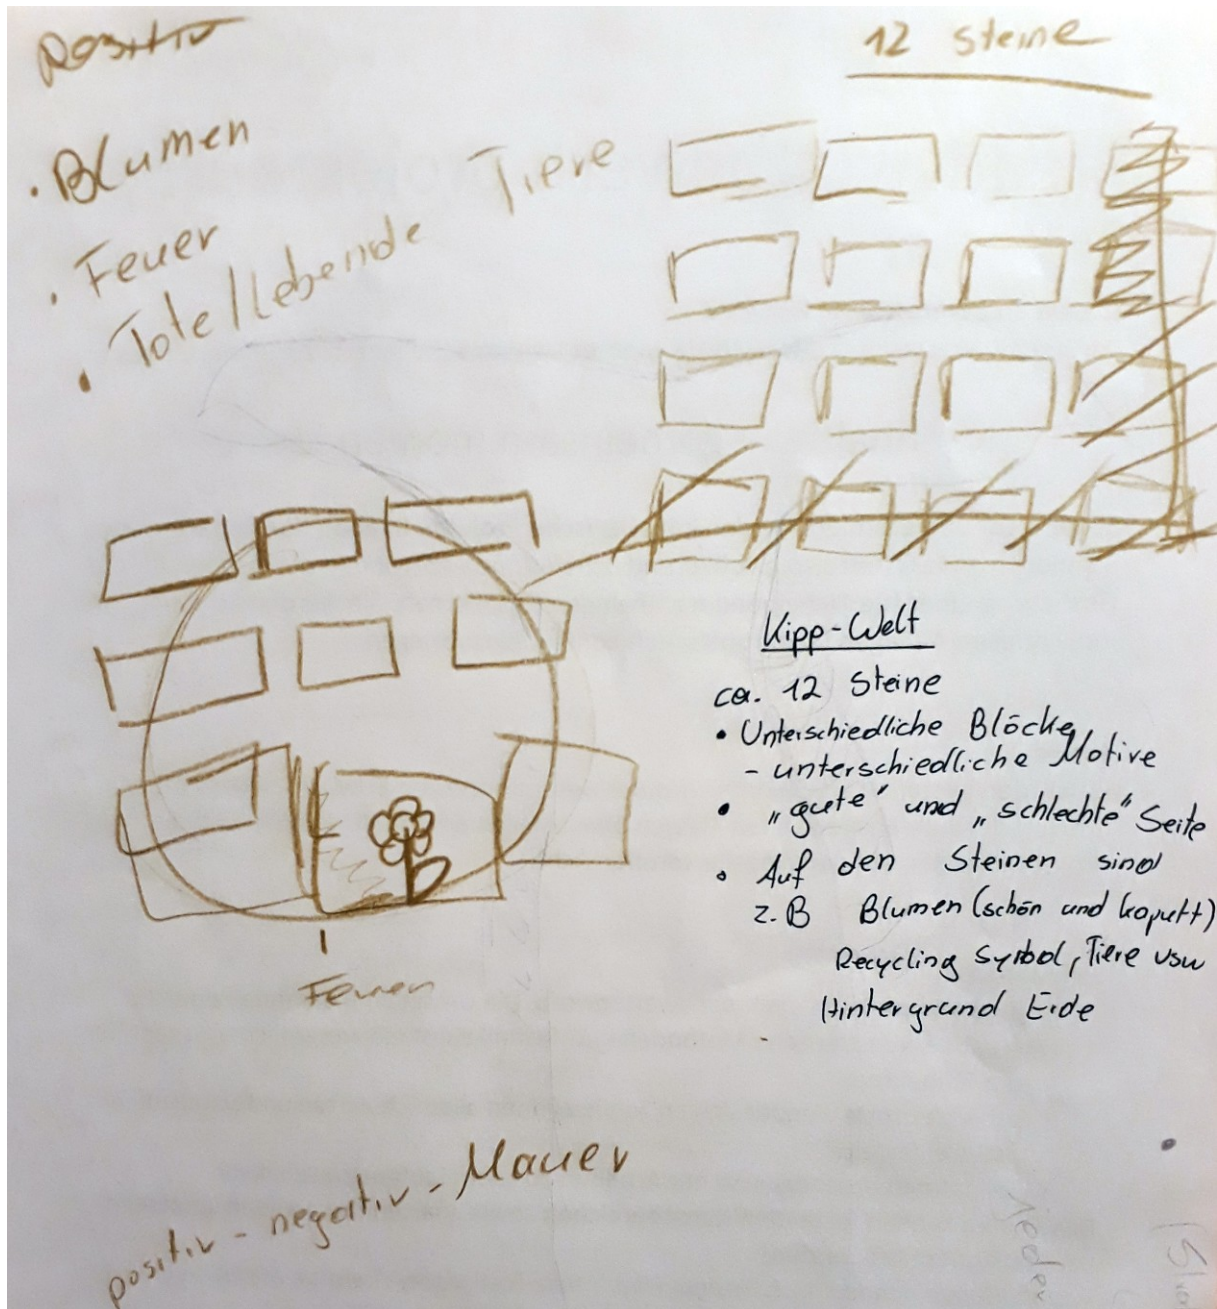 Positiv
12 Steine
• Blumen
• Feuer
• Tote/lebende Tiere
Kipp-Welt
ca. 12 Steine
• Unterschiedliche Blöcke
- unterschiedliche Motive
• „gute“ und „schlechte“ Seite
• Auf den Steinen sind
z.B Blumen (schön und kaputt)
Recycling Symbol, Tiere usw
Hintergrund Erde
positiv - negativ - Mauer